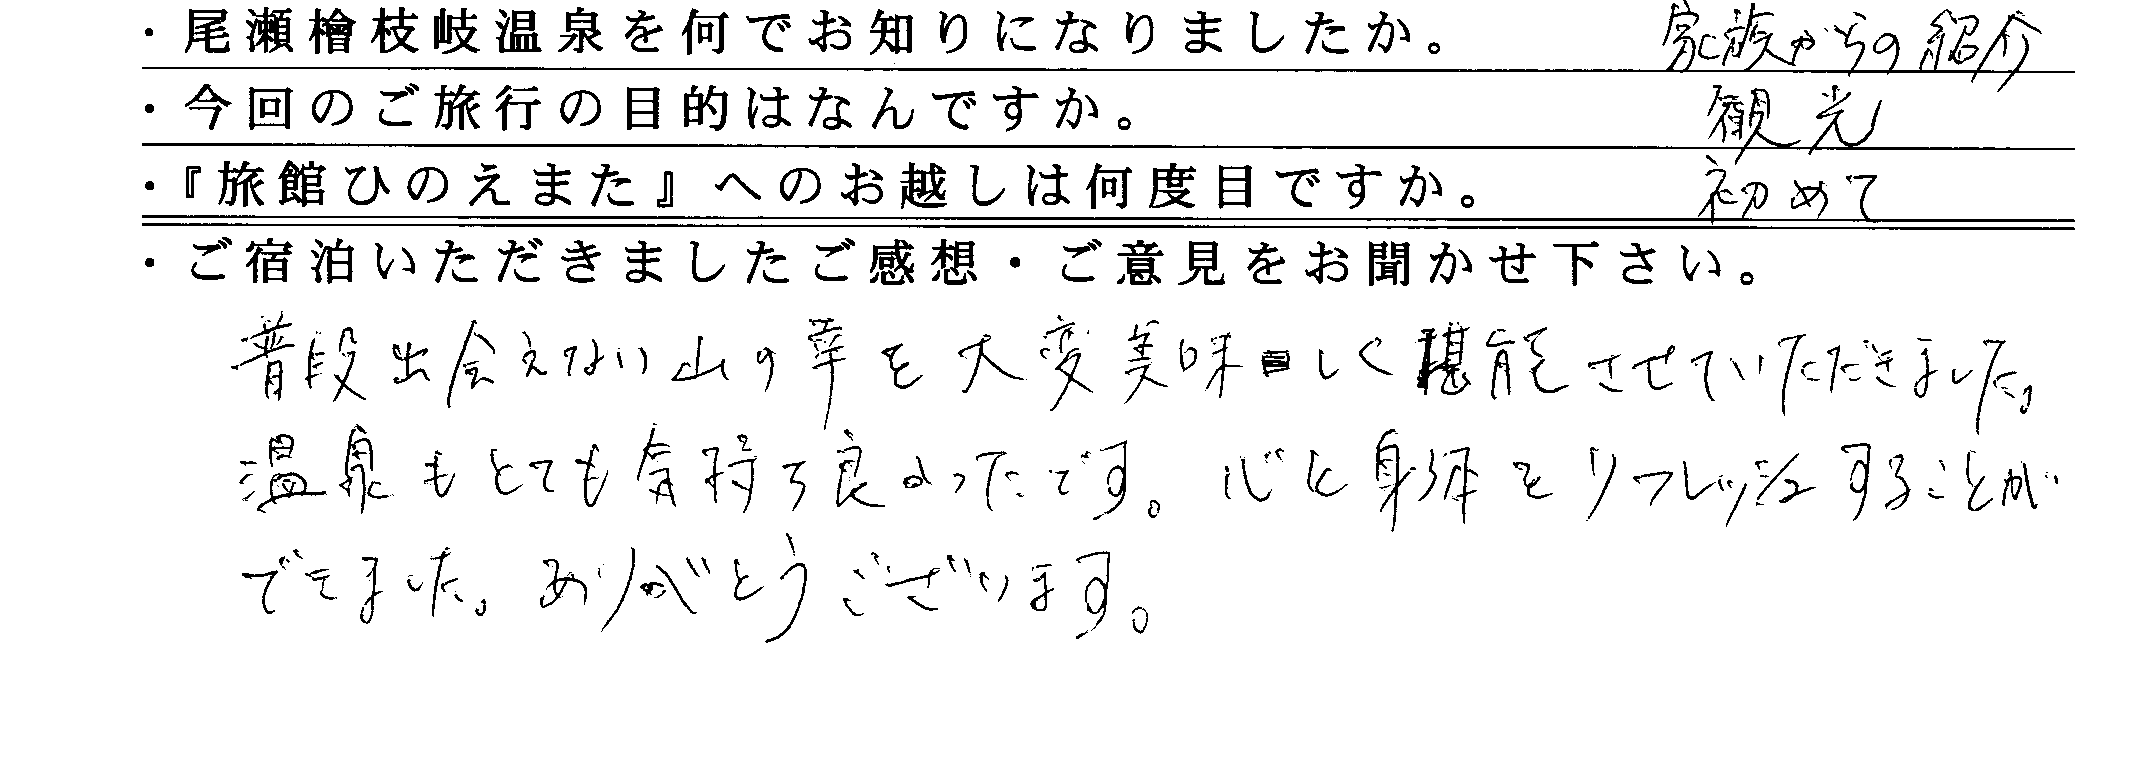 ・尾瀬檜枝岐温泉を何でお知りになりましたか。 家族からの紹介
・今回のご旅行の目的はなんですか。 観光
・『旅館ひのえまた』へのお越しは何度目ですか。 初めて
・ご宿泊いただきましたご感想・ご意見をお聞かせ下さい。
普段出会えない山の幸を大変美味しく堪能させていただきました。
温泉もとても気持ち良かったです。心と身体をリフレッシュすることが
できました。ありがとうございます。